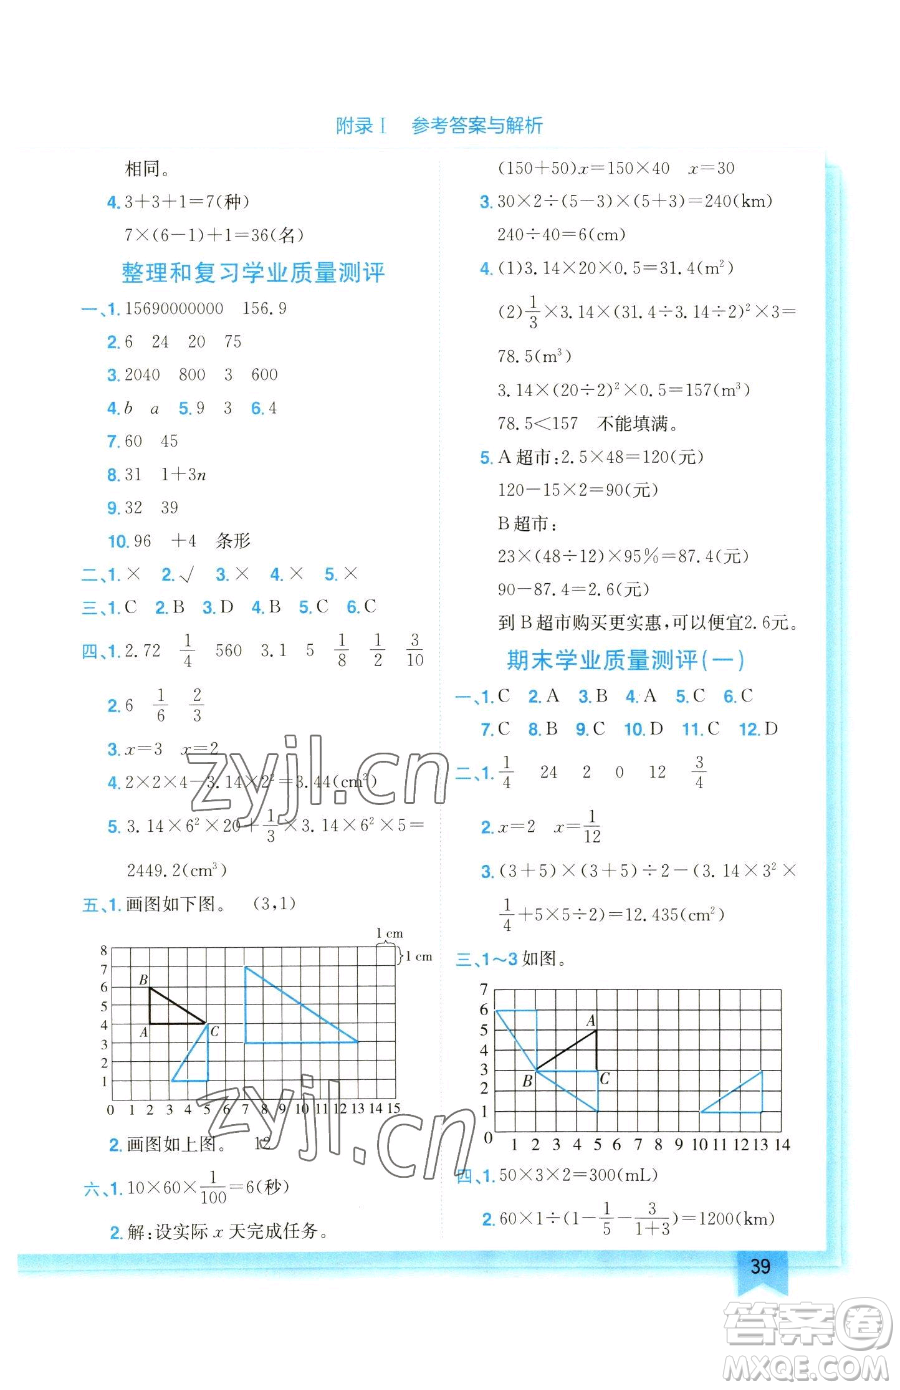 附录Ⅰ 参考答案与解析
相同。
4. 3+3+1=7(种)
7×(6-1)+1=36(名)
整理和复习学业质量测评
一、1. 15690000000 156.9
2. 6 24 20 75
3. 2040 800 3 600
4. b a 5. 9 3 6. 4
7. 60 45
8. 31 1+3n
9. 32 39
10. 96 +4 条形
二、1. × 2. √ 3. × 4. × 5. ×
三、1. C 2. B 3. D 4. B 5. C 6. C
四、1. 2.72 1/4 560 3.1 5 1/8 1/2 3/10
2. 6 1/6 2/3
3. x=3 x=2
4. 2×2×4-3.14×2²=3.44(cm²)
5. 3.14×6²×20+1/3×3.14×6²×5=
2449.2(cm³)
五、1. 画图如下图。 (3,1)
1 cm
1 cm
8
7
6
5
4
3
2
1
B
A
C
0 1 2 3 4 5 6 7 8 9 10 11 12 13 14 15
2. 画图如上图。 12
六、1. 10×60×1/100=6(秒)
2. 解:设实际 x 天完成任务。
(150+50)x=150×40 x=30
3. 30×2÷(5-3)×(5+3)=240(km)
240÷40=6(cm)
4. (1)3.14×20×0.5=31.4(m²)
(2)1/3×3.14×(31.4÷3.14÷2)²×3=
78.5(m³)
3.14×(20÷2)²×0.5=157(m³)
78.5<157 不能填满。
5. A 超市:2.5×48=120(元)
120-15×2=90(元)
B 超市:
23×(48÷12)×95%=87.4(元)
90-87.4=2.6(元)
到 B 超市购买更实惠,可以便宜2.6元。
期末学业质量测评(一)
一、1. C 2. A 3. B 4. A 5. C 6. C
7. C 8. B 9. C 10. D 11. C 12. D
二、1. 1/4 24 2 0 12 3/4
2. x=2 x=1/12
3. (3+5)×(3+5)÷2-(3.14×3²×
1/4+5×5÷2)=12.435(cm²)
三、1~3 如图。
7
6
5
4
3
2
1
0
A
B
C
1 2 3 4 5 6 7 8 9 10 11 12 13 14
四、1. 50×3×2=300(mL)
2. 60×1÷(1-1/5-3/(1+3))=1200(km)
39
zyjl.cn
zyjl.cn
答案圈
MXQE.COM